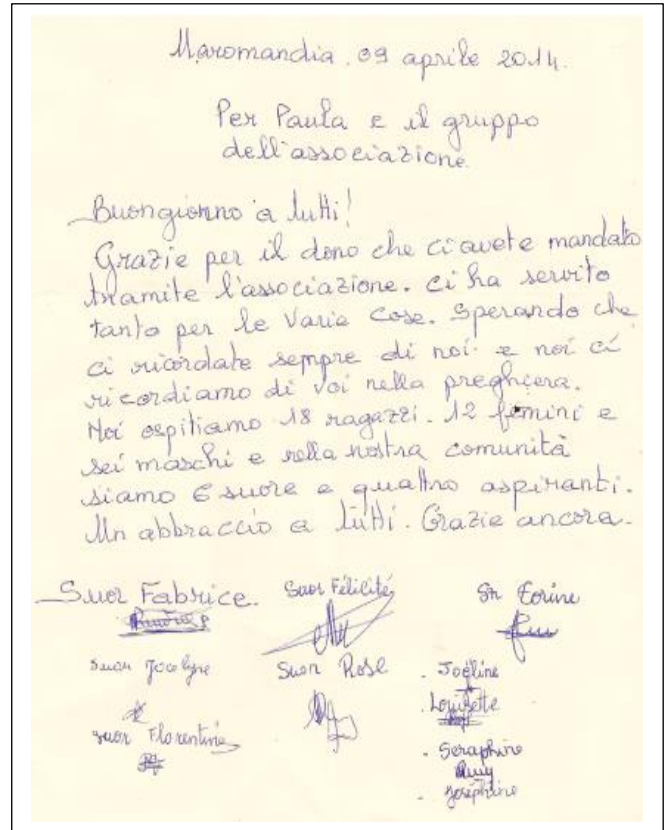 Maromandia. 09 aprile 2014.
Per Paula e il gruppo
dell'associazione.
Buongiorno a tutti!
Grazie per il dono che ci avete mandato
tramite l'associazione. ci ha servito
tanto per le Varie Cose. Sperando che
ci ricordate sempre di noi e noi ci
ricordiamo di voi nella preghiera.
Noi ospitiamo 18 ragazzi. 12 femini e
sei maschi e nella nostra comunità
siamo 6 suore e quattro aspiranti.
Un abbraccio a tutti. Grazie ancora.
Suor Fabrice. Suor Félicité Sr Corine
Suor Jocelyne Suor Rose - Joéline
- Louisette
Suor Florentine
- Seraphine
- Joséphine